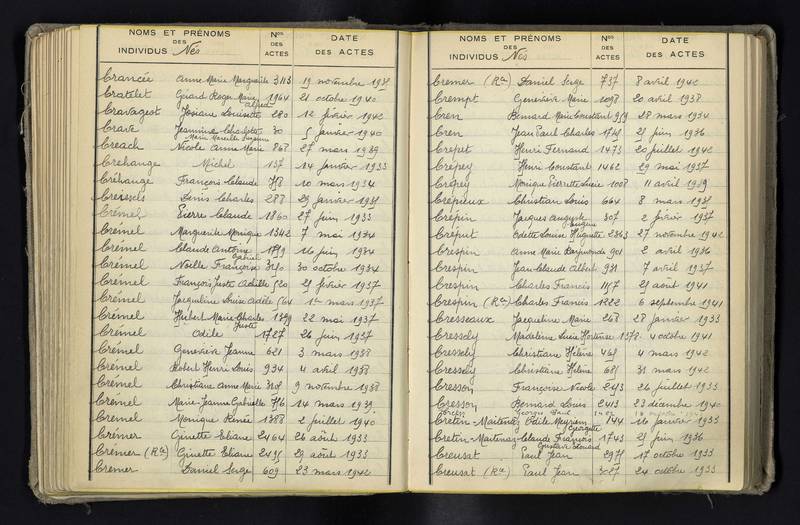 NOMS ET PRÉNOMS DES INDIVIDUS Nés Nos DES ACTES DATE DES ACTES
Crancée Anne Marie Marguerite 3113 19 novembre 1931
Cratelet Gérard Roger Marie Alfred 1964 21 octobre 1940
Cravageot Josiane Louisette 280 12 février 1942
Crave Jeannine Charlotte 30 5 janvier 1940
Creach Nicole Anne Marie 868 27 mars 1939
Crehange Michel 137 14 janvier 1933
Créhange François Claude 718 10 mars 1934
Denis Charles 288 29 janvier 1931
Crémel Pierre Claude 1860 27 juin 1933
Crémel Marguerite Monique 1342 7 mai 1934
Crémel Claude Antoine Gabriel 1719 16 juin 1934
Crémel Noëlle Françoise 3140 30 octobre 1934
Crémel François Juste Achille 520 21 février 1937
Crémel Jacqueline Louise Adèle 564 1er mars 1937
Crémel Hubert Marie Charles Juste 22 mai 1937
Crémel Odile 1727 26 juin 1937
Crémel Geneviève Jeanne 621 3 mars 1938
Crémel Robert Henri Louis 934 4 avril 1938
Crémel Christiane Anne Marie 9 novembre 1938
Crémel Marie-Jeanne Gabrielle 776 14 mars 1939
Crémel Monique Renée 1388 2 juillet 1940
Crémer Ginette Eliane 2464 26 août 1933
Crémer (Rte) Ginette Eliane 2491 29 août 1933
Cremer Daniel Serge 609 23 mars 1942
NOMS ET PRÉNOMS DES INDIVIDUS Nés Nos DES ACTES DATE DES ACTES
Cremer (Rte) Daniel Serge 737 8 avril 1942
Crempt Geneviève Marie 1098 20 avril 1938
Cren Bernard Marie Constant 919 28 mars 1934
Cren Jean Paul Charles 21 juin 1936
Crepet Henri Fernand 1473 20 juillet 1942
Crepey Henri Constant 1462 29 mai 1937
Crepey Monique Pierrette Lucie 1008 11 avril 1939
Crépieux Christian Louis 664 8 mars 1931
Crépin Jacques Auguste Eugène 307 2 février 1937
Créput Odette Louise Huguette 2363 27 novembre 1942
Crespin Anne Marie Raymonde 901 2 avril 1936
Crespin Jean Claude Albert 931 7 avril 1937
Crespin Charles Francis 1157 21 août 1941
Crespin (Rte) Charles Francis 1222 6 septembre 1941
Cresseaux Jacqueline Marie 268 28 janvier 1933
Cressely Madeleine Lucie Hortense 1378 4 octobre 1941
Cressely Christiane Hélène 468 4 mars 1942
Cressely Christiane Hélène 681 31 mars 1942
Cresson Françoise Nicole 2413 26 juillet 1933
Cresson Bernard Louis 2413 23 décembre 1940
Georges Paul
Cretin-Maitenaz Odile Meyriam Georgette 144 16 janvier 1933
Cretin-Maitenaz Claude François Gustave Edouard 1743 21 juin 1936
Creusat Paul Jean 2971 17 octobre 1933
Creusat (Rte) Paul Jean 3027 24 octobre 1933